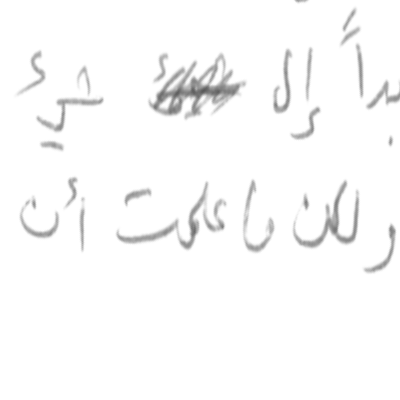 بداً إلى شيء
ولكن ما علمت أن